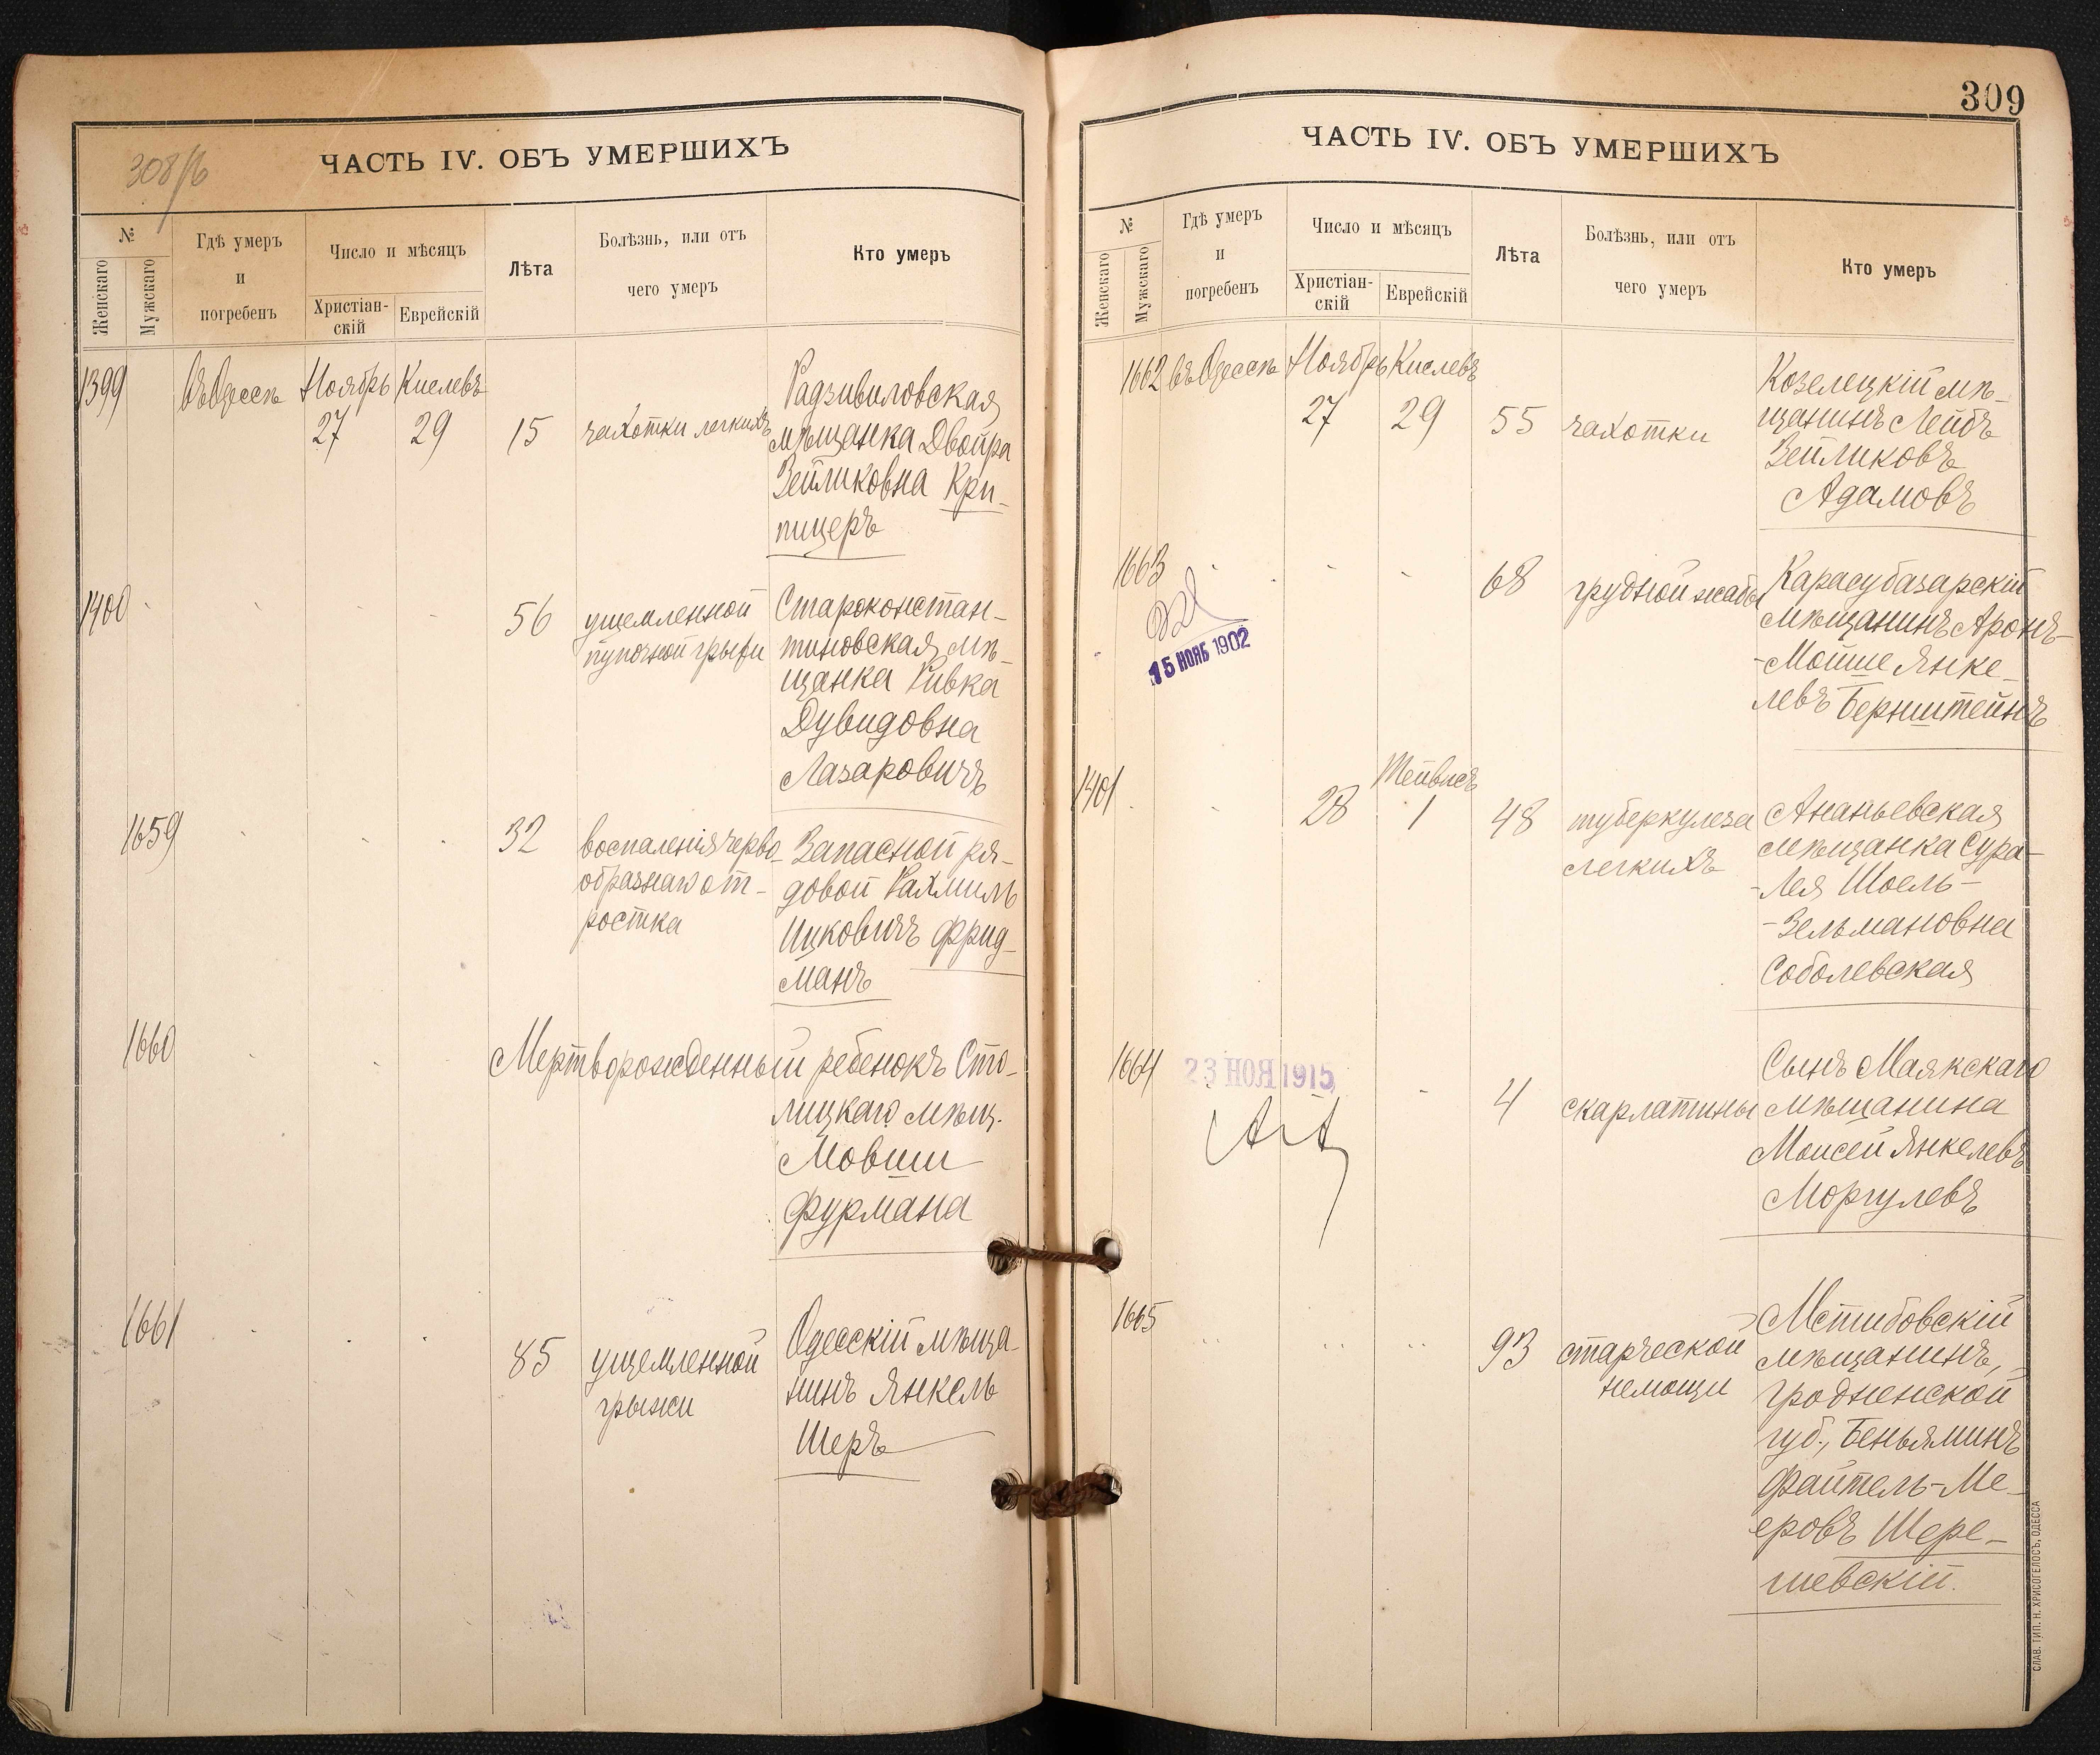 308/б
ЧАСТЬ IV. ОБЪ УМЕРШИХЪ
№
Женскаго
Мужскаго
Гдѣ умеръ
и
погребенъ
Число и мѣсяцъ
Христіан-
скій
Еврейскій
Лѣта
Болѣзнь, или отъ
чего умеръ
Кто умеръ
1399
въ Одессѣ
Ноябрь
27
Кислевъ
29
15
чахотки легкихъ
Радзивиловская
мѣщанка Двойра
Зейликовна Кри-
пицеръ
1400
56
ущемленной
пупочной грыжи
Староконстан-
тиновская мѣ-
щанка Ривка
Дувидовна
Лазаровичъ
1659
32
воспаленія черво-
образнаго от-
ростка
Запасной ря-
довой Рахмиль
Ицковичъ Фрид-
манъ
1660
Мертворожденный ребенокъ Сто-
лицкаго мѣщ.
Мовши
Фурмана
1661
85
ущемленной
грыжи
Одесскій мѣща-
нинъ Янкель
Шеръ
309
ЧАСТЬ IV. ОБЪ УМЕРШИХЪ
№
Женскаго
Мужскаго
Гдѣ умеръ
и
погребенъ
Число и мѣсяцъ
Христіан-
скій
Еврейскій
Лѣта
Болѣзнь, или отъ
чего умеръ
Кто умеръ
1662
въ Одессѣ
Ноябрь
27
Кислевъ
29
55
чахотки
Козелецкій мѣ-
щанинъ Лейбъ
Зейликовъ
Адамовъ
1663
15 НОЯБ 1902
68
грудной жабы
Карасубазарскій
мѣщанинъ Аронъ-
-Мойше Янке-
левъ Бернштейнъ
1401
28
Тейвисъ
1
48
туберкулеза
легкихъ
Ананьевская
мѣщанка Сура-
-Лея Шоель-
-Зельмановна
Соболевская
1664
23 НОЯ 1915
4
скарлатины
Сынъ Маякскаго
мѣщанина
Моисей Янкелевъ
Моргулевъ
1665
93
старческой
немощи
Мстибовскій
мѣщанинъ,
Гродненской
губ., Беньяминъ
Файтель-Ме-
еровъ Шере-
шевскій.
СЛАВ. ТИП. Н. ХРИСОГЕЛОСЪ, ОДЕССА